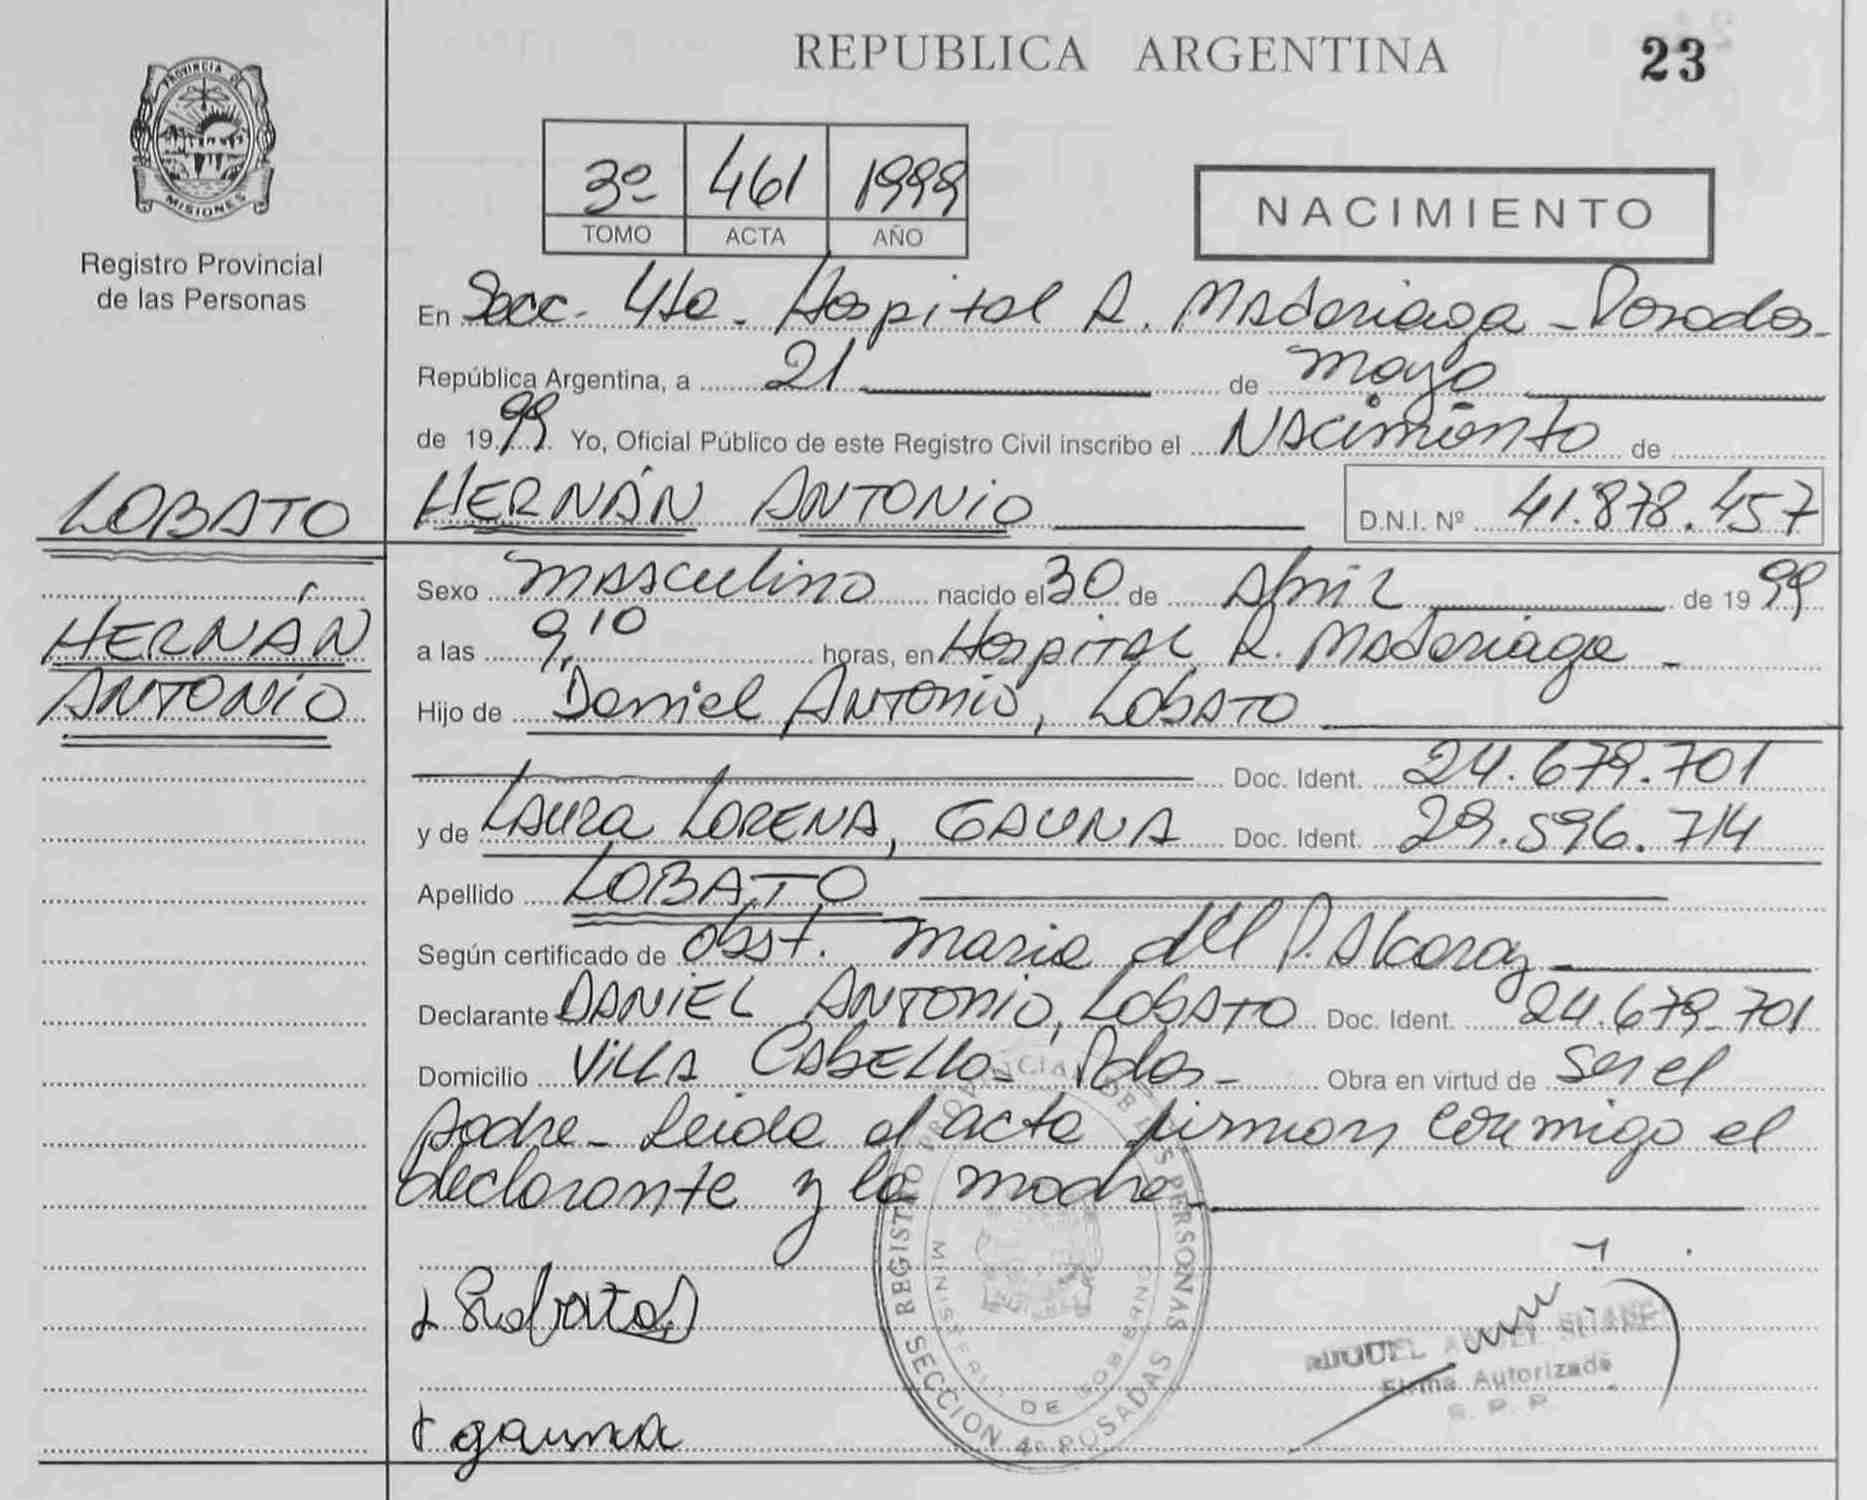 REPUBLICA ARGENTINA 23
PROVINCIA DE
MISIONES
Registro Provincial
de las Personas
3º 461 1999
TOMO ACTA AÑO
NACIMIENTO
En Secc. 4ta. Hospital R. Madariaga - Posadas -
República Argentina, a 21 de mayo
de 1999 Yo, Oficial Público de este Registro Civil inscribo el Nacimiento de
LOBATO HERNÁN ANTONIO D.N.I. Nº 41.878.457
Sexo masculino nacido el 30 de Abril de 1999
HERNÁN a las 9,10 horas, en Hospital R. Madariaga -
ANTONIO Hijo de Daniel Antonio, Lobato
Doc. Ident. 24.679.701
y de Laura Lorena, GAUNA Doc. Ident. 29.596.714
Apellido LOBATO
Según certificado de Obst. Maria del P. Alcaraz
Declarante DANIEL ANTONIO, LOBATO Doc. Ident. 24.679.701
Domicilio Villa Cabello - Pdas - Obra en virtud de ser el
padre - Leida el acta firman conmigo el
declarante y la madre -
REGISTRO PROVINCIAL DE LAS PERSONAS
MINISTERIO DE GOBIERNO
SECCION 4a POSADAS
Firma Autorizada
gauna